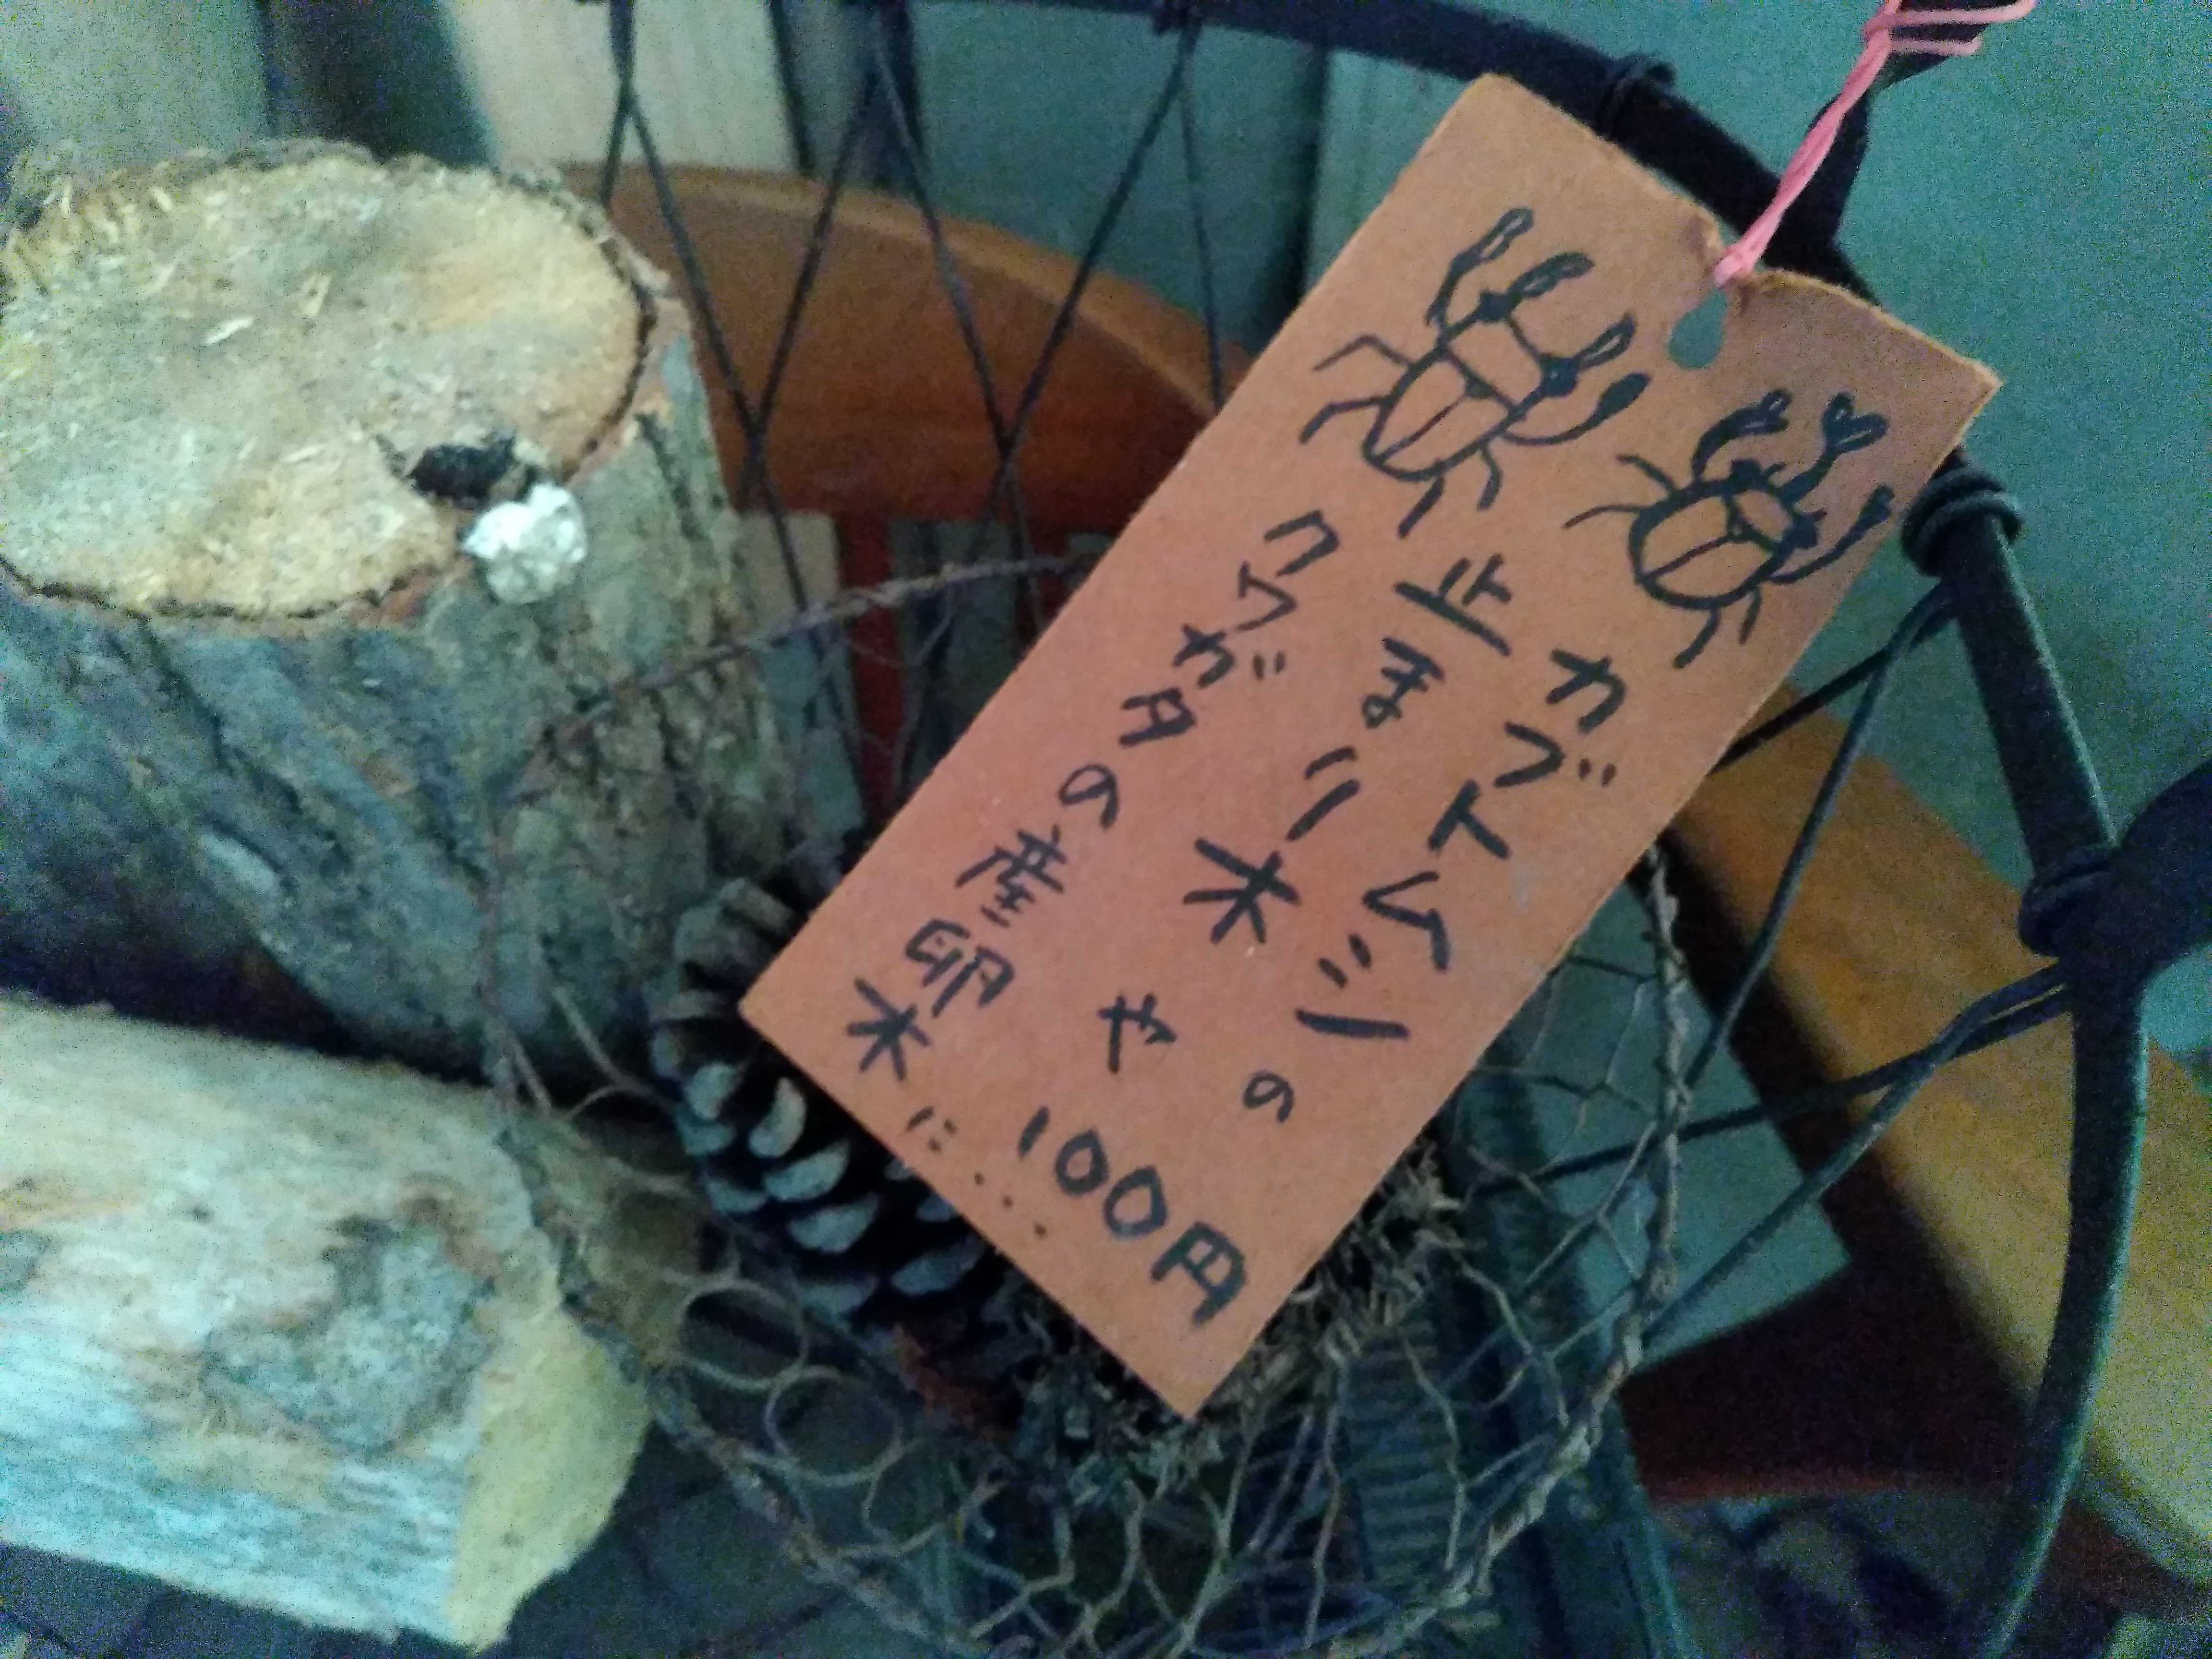 カブトムシの
止まり木や
クワガタの産卵
木に...
100円